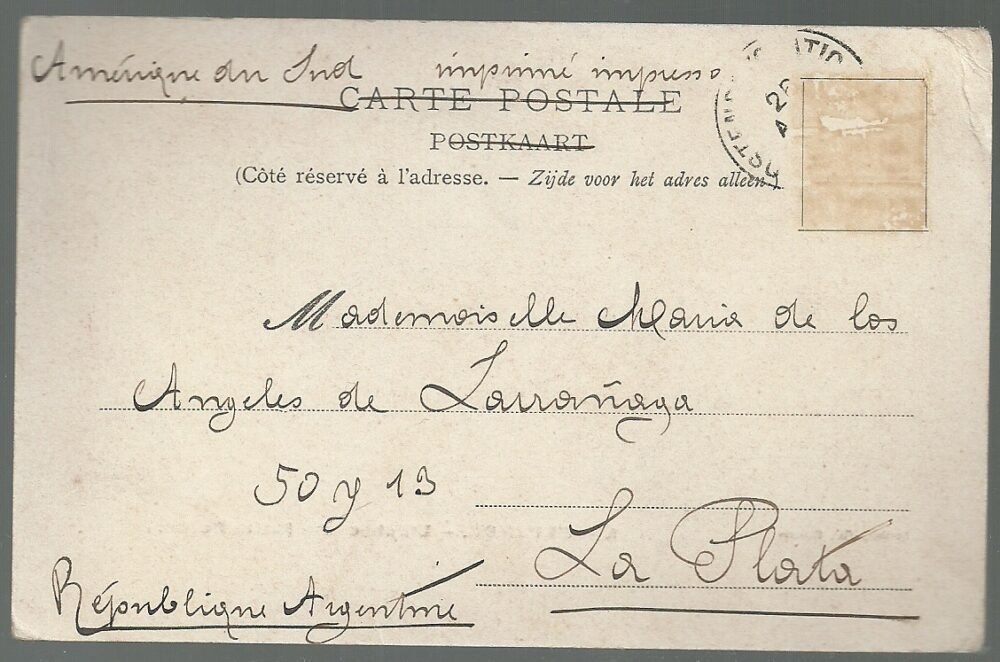 Amérique du Sud imprimé impreso
CARTE POSTALE
POSTKAART
(Côté réservé à l'adresse. — Zijde voor het adres alleen.)
Mademoiselle Maria de los
Angeles de Larrañaga
50 y 13
La Plata
République Argentine